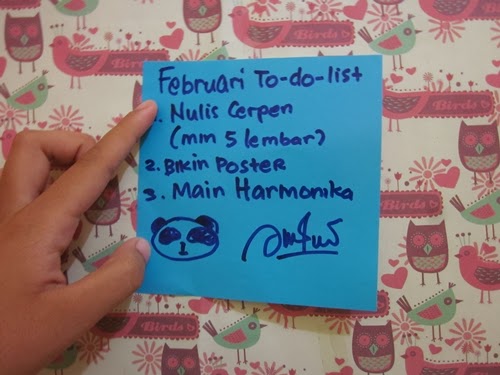 Februari To-do-list
1. Nulis Cerpen
(mm 5 lembar)
2. Bikin Poster
3. Main Harmonika
Birds
Birds
Birds
Birds